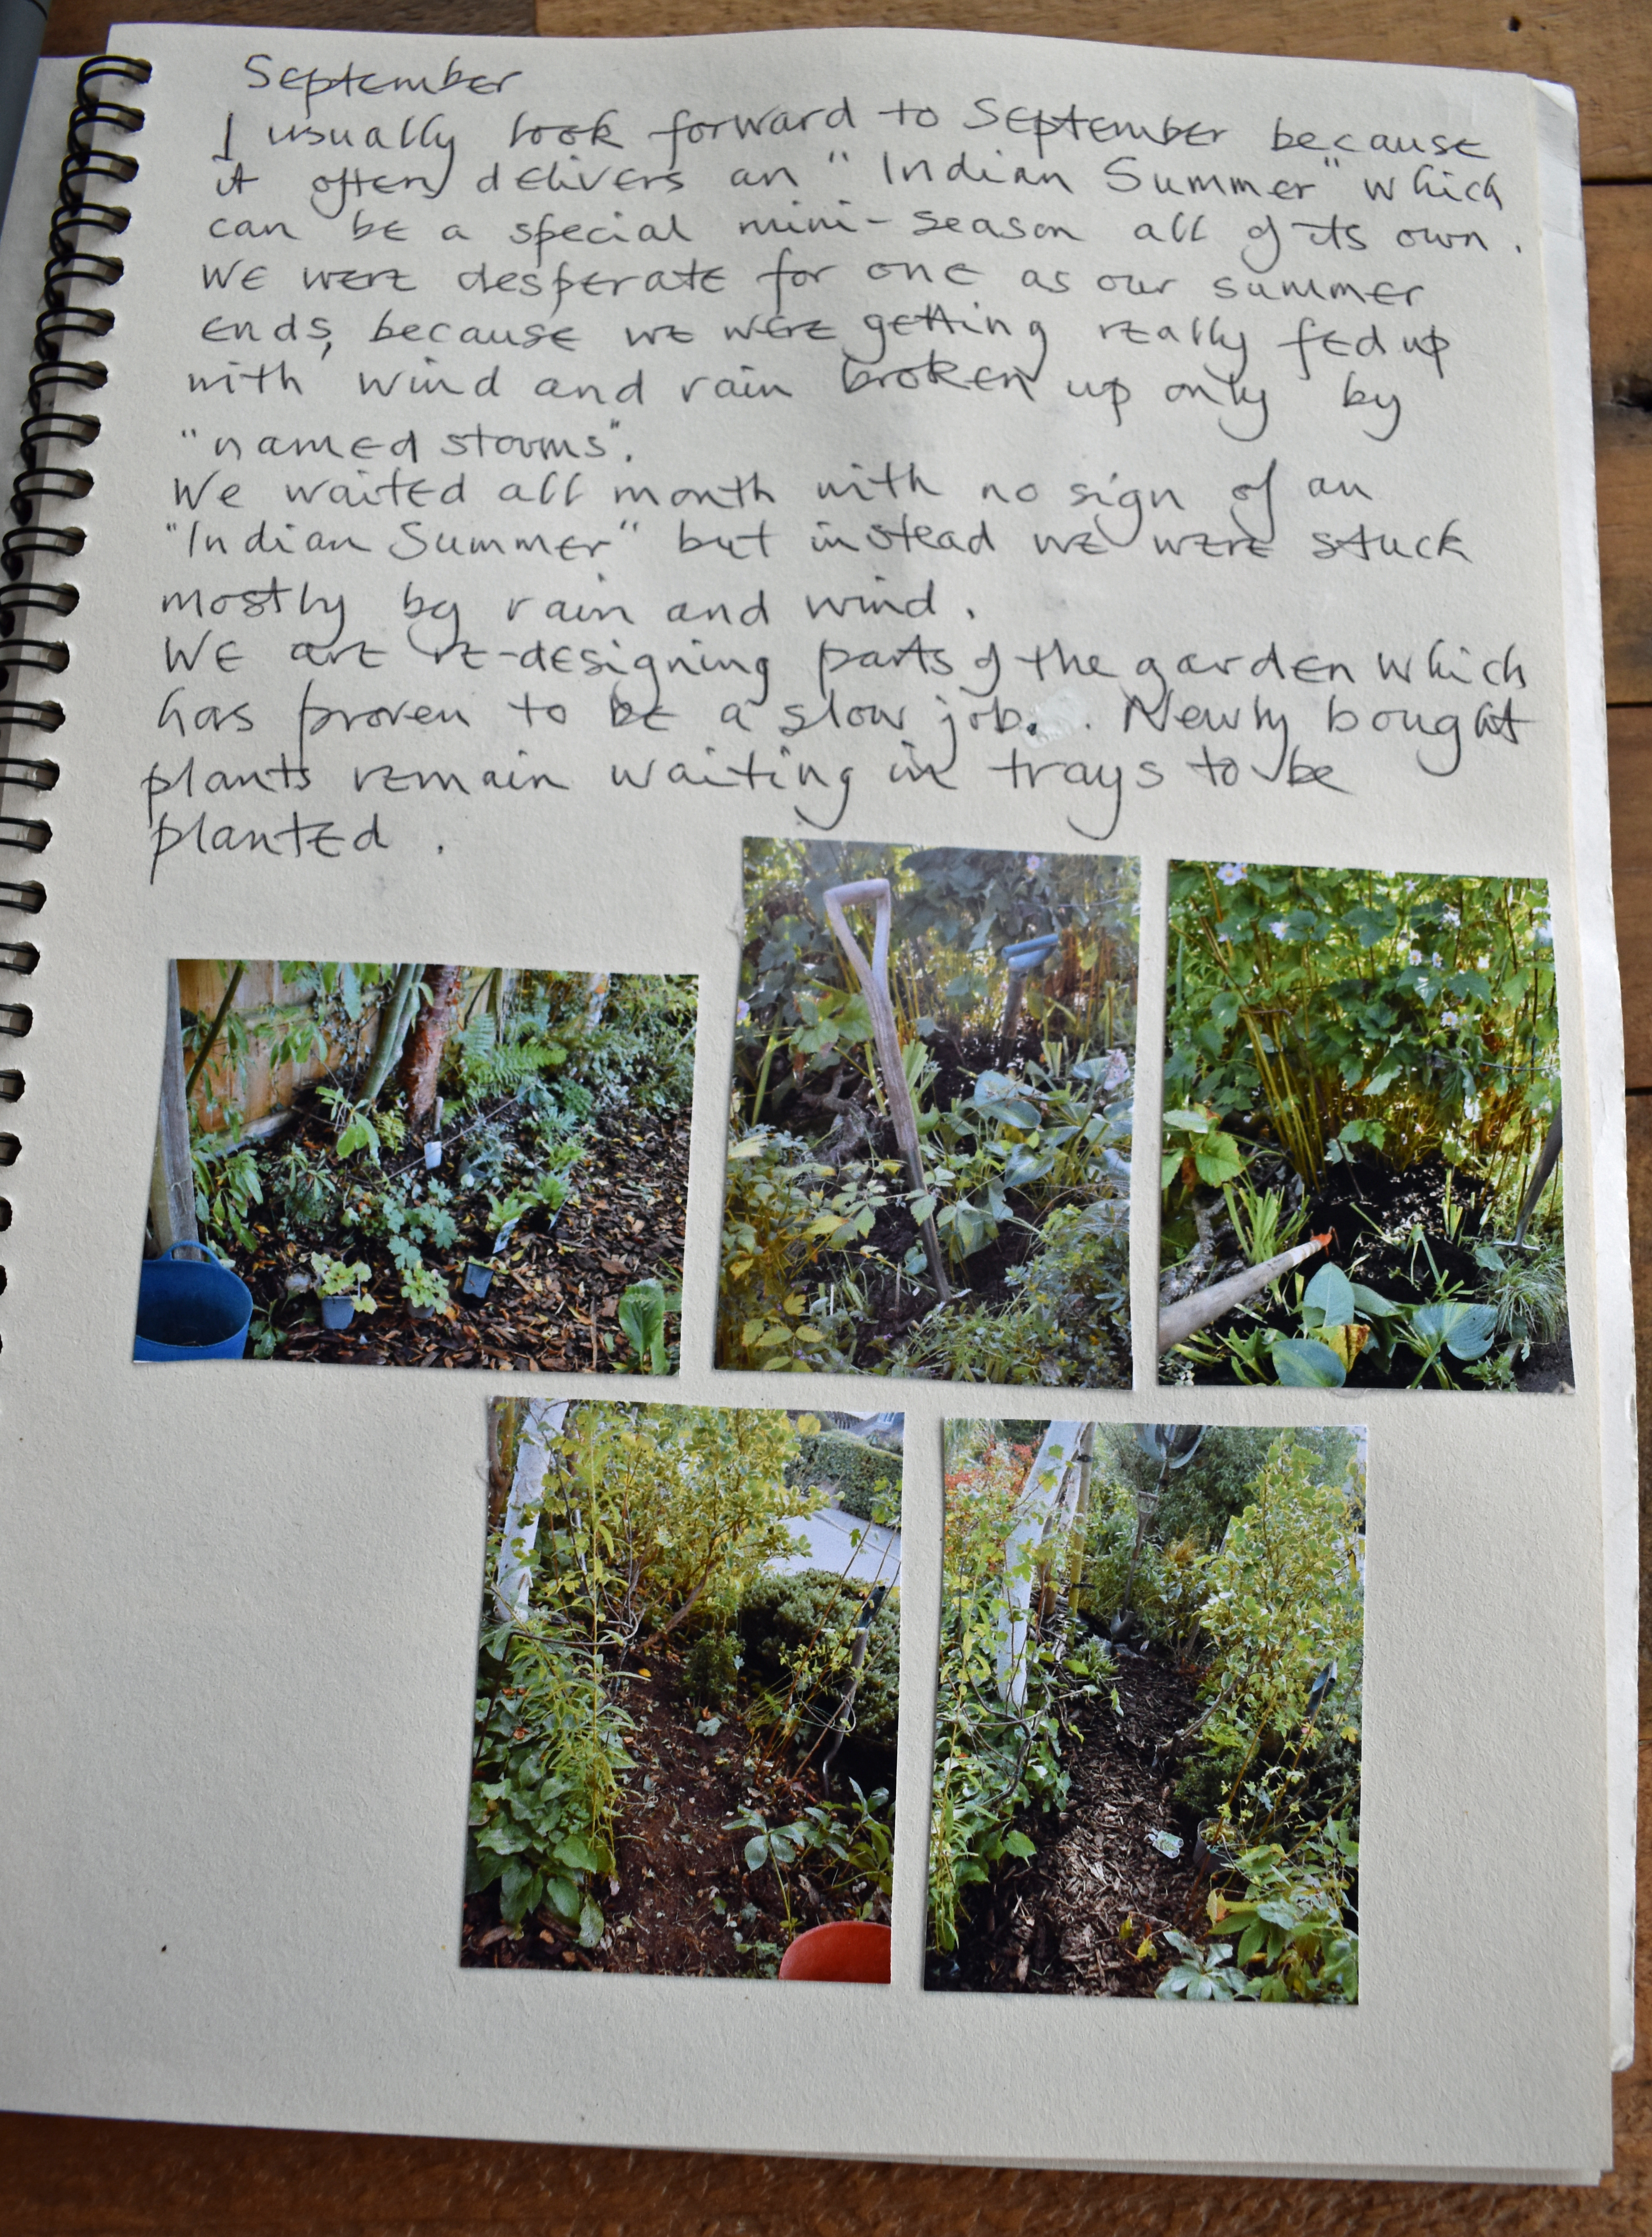 September
I usually look forward to September because
it often delivers an "Indian Summer" which
can be a special mini-season all of its own.
We were desperate for one as our summer
ends, because we were getting really fed up
with wind and rain broken up only by
"named storms".
We waited all month with no sign of an
"Indian Summer" but instead we were stuck
mostly by rain and wind.
We are re-designing parts of the garden which
has proven to be a slow job. . Newly bought
plants remain waiting in trays to be
planted .